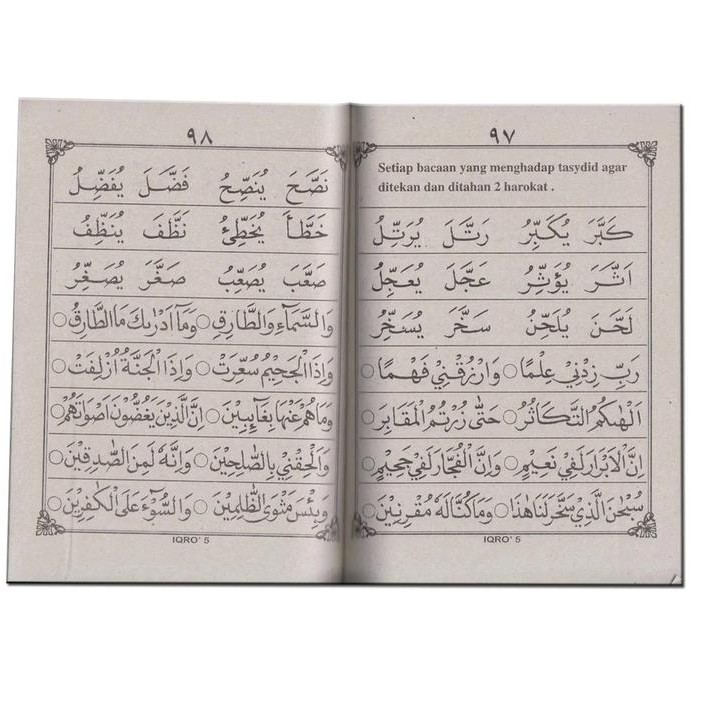 ٩٧
Setiap bacaan yang menghadap tasydid agar
ditekan dan ditahan 2 harokat .
كَبَّرَ يُكَبِّرُ رَتَّلَ يُرَتِّلُ
اَثَّرَ يُؤَثِّرُ عَجَّلَ يُعَجِّلُ
لَحَّنَ يُلَحِّنُ سَخَّرَ يُسَخِّرُ
رَبِّ زِدْنِيْ عِلْمًا ○ وَارْزُقْنِيْ فَهْمًا ○
اَلْهٰىكُمُ التَّكَاثُرُ ○ حَتّٰى زُرْتُمُ الْمَقَابِرَ ○
اِنَّ الْاَبْرَارَ لَفِيْ نَعِيْمٍ ○ وَاِنَّ الْفُجَّارَ لَفِيْ جَحِيْمٍ ○
سُبْحٰنَ الَّذِيْ سَخَّرَ لَنَا هٰذَا ○ وَمَا كُنَّا لَهٗ مُقْرِنِيْنَ ○
IQRO' 5
٩٨
نَصَّحَ يُنَصِّحُ فَضَّلَ يُفَضِّلُ
خَطَّأَ يُخَطِّئُ نَظَّفَ يُنَظِّفُ
صَعَّبَ يُصَعِّبُ صَغَّرَ يُصَغِّرُ
وَالسَّمَاۤءِ وَالطَّارِقِ ○ وَمَا اَدْرٰىكَ مَا الطَّارِقُ ○
وَاِذَا الْجَحِيْمُ سُعِّرَتْ ○ وَاِذَا الْجَنَّةُ اُزْلِفَتْ ○
وَمَا هُمْ عَنْهَا بِغَاۤىِٕبِيْنَ ○ اِنَّ الَّذِيْنَ يَغُضُّوْنَ اَصْوَاتَهُمْ ○
وَاَلْحِقْنِيْ بِالصّٰلِحِيْنَ ○ وَاِنَّهٗ لَمِنَ الصّٰدِقِيْنَ ○
وَبِئْسَ مَثْوَى الظّٰلِمِيْنَ ○ وَالسُّوْۤءَ عَلَى الْكٰفِرِيْنَ ○
IQRO' 5